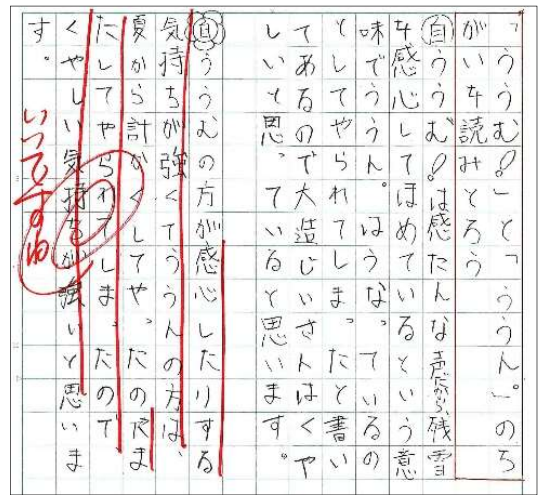 「ううむ！」と「ううん。」のち
がいを読みとろう
自ううむ！は感たんな声だから、残雪
を感心してほめているという意
味でううん。はうなっているの
としてやられてしまったと書い
てあるので大造じいさんはくや
しいと思っていると思います。
自ううむの方が感心したりする
気持ちが強くてううんの方は、
夏から計かくしてやったのにま
たしてやられてしまったので
くやしい気持ちが強いと思いま
す。
いいですね